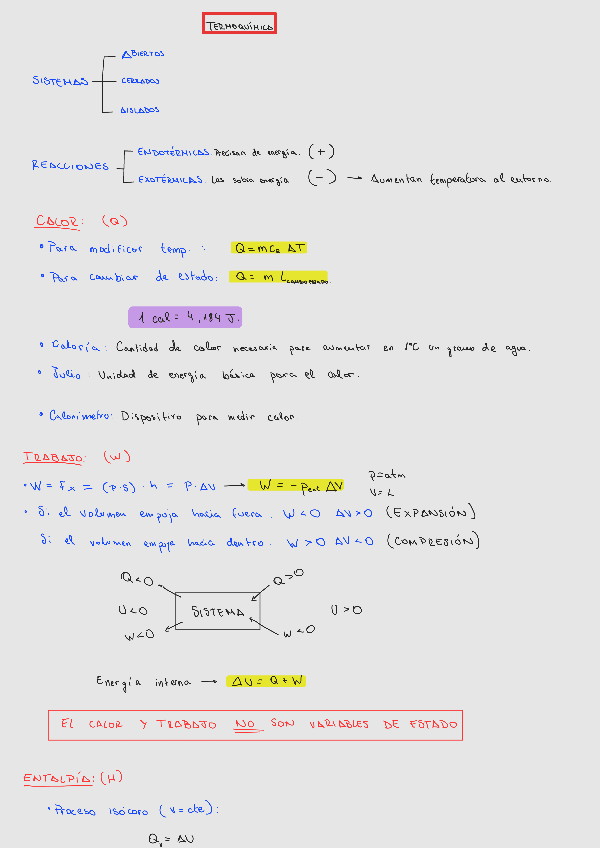 TERMOQUÍMICA
ABIERTOS
SISTEMAS
CERRADOS
AISLADOS
ENDOTÉRMICAS. Precisan de energía. (+)
REACCIONES
EXOTÉRMICAS. Les sobra energía (-) → Aumentan temperatura al entorno.
CALOR: (Q)
• Para modificar temp.: Q = m Ce ΔT
• Para cambiar de estado: Q = m L cambio estado.
1 cal = 4,184 J.
• Caloría: Cantidad de calor necesaria para aumentar en 1ºC un gramo de agua.
• Julio: Unidad de energía básica para el calor.
• Calorímetro: Dispositivo para medir calor
TRABAJO: (W)
p=atm
• W = Fx = (P·S)·h = P·ΔV → W = -Pext ΔV
V= L
• Si el volumen empuja hacia fuera. W<0 ΔV>0 (EXPANSIÓN)
Si el volumen empuja hacia dentro. W>0 ΔV<0 (COMPRESIÓN)
Q<0 Q>0
U<0 SISTEMA U>0
W<0 W<0
Energía interna → ΔU = Q + W
EL CALOR Y TRABAJO NO SON VARIABLES DE ESTADO
ENTALPÍA: (H)
• Proceso isócoro (v=cte):
Qv = ΔU